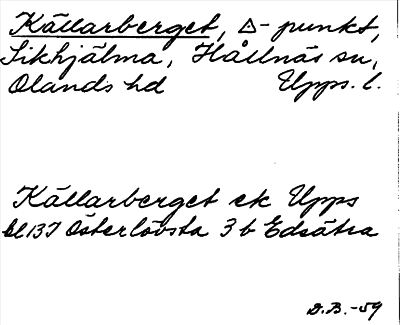 Källarberget, △-punkt,
Sikhjälma, Hållnäs sn,
Olands hd Upps. l.
Källarberget ek Upps
bl 137 Österlövsta 3 b Edsätra
D.B. -59